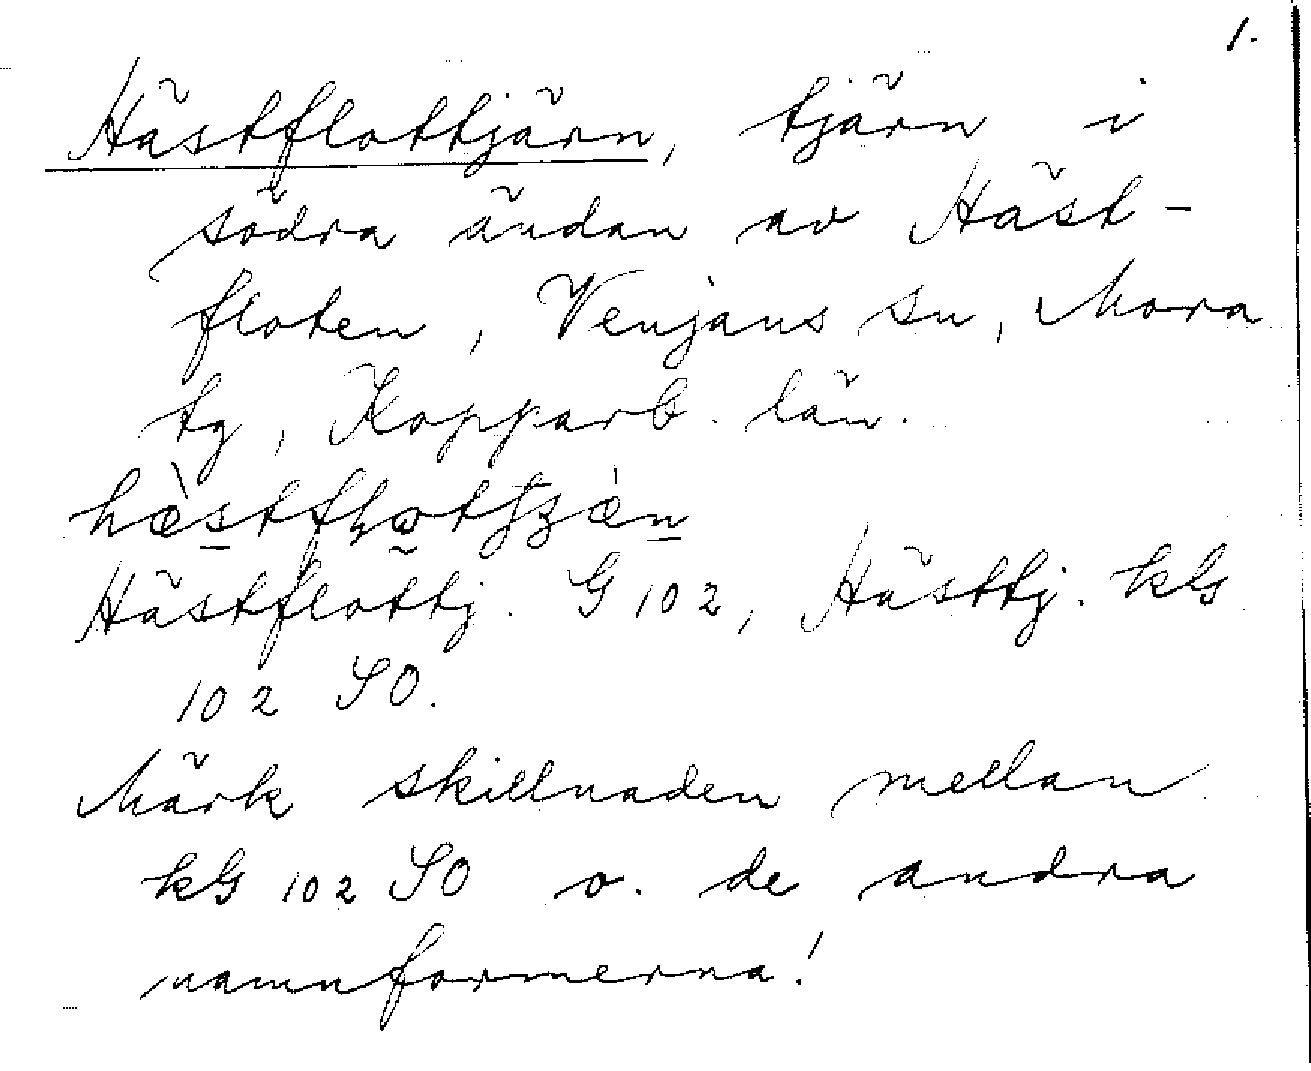 1.
Hästflottjärn, tjärn i
södra ändan av Häst-
floten, Venjans sn, Mora
tg, Kopparb. län.
Hästflottj. G 102, Hästtj. kG
102 SO.
Märk skillnaden mellan
kG 102 SO o. de andra
namnformerna!